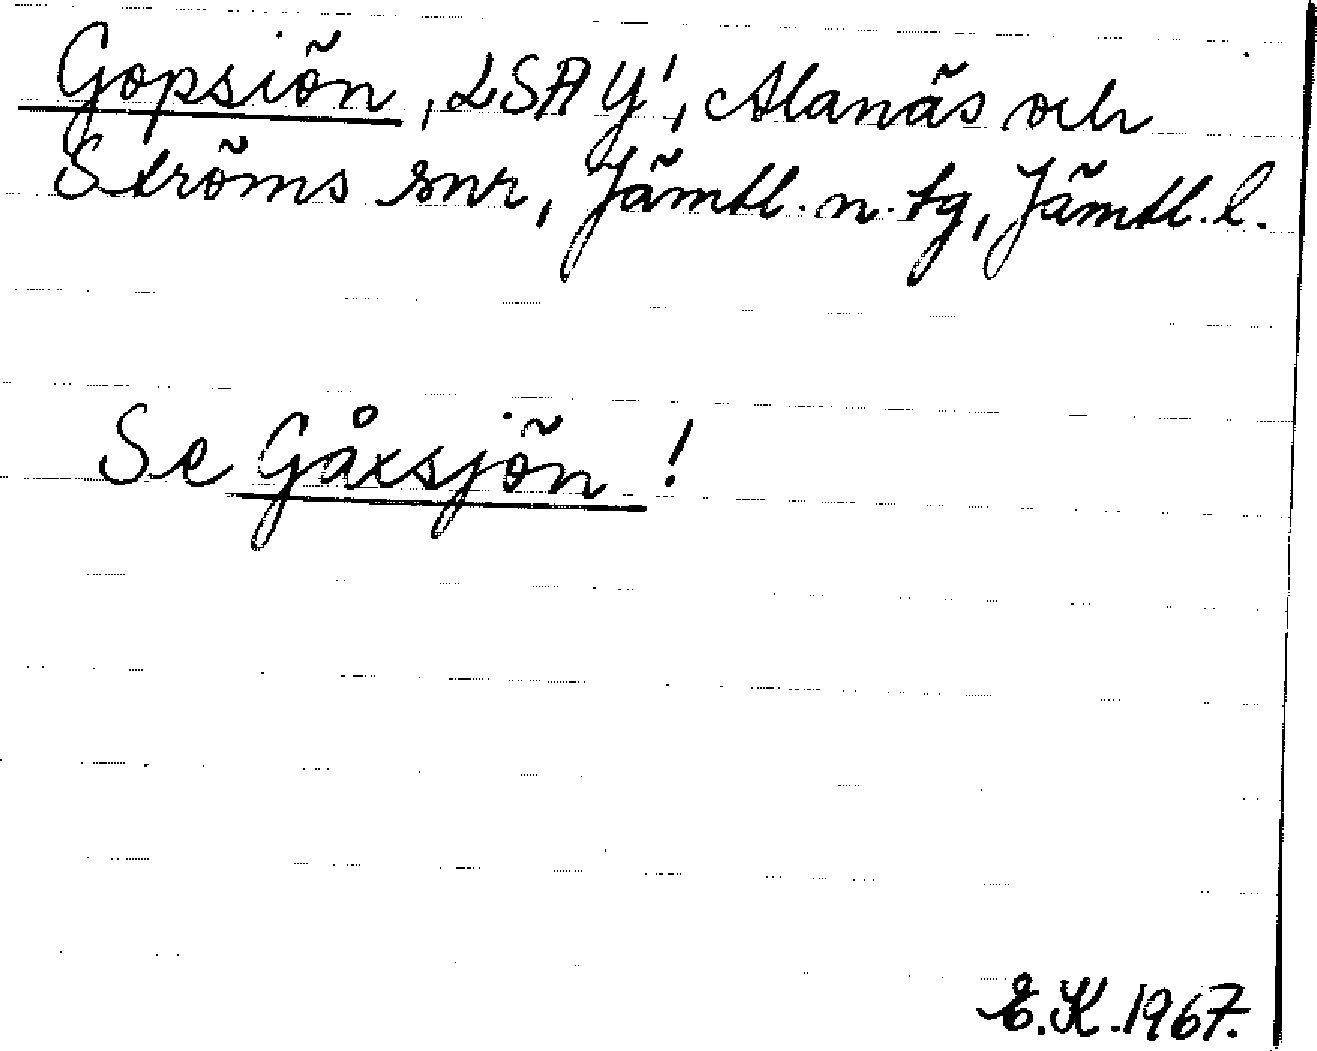 Gopsiön, LSA Y', Alanäs och
Ströms snr, Jämtl. n. tg, Jämtl. l.
Se Gåxsjön!
E.K. 1967.